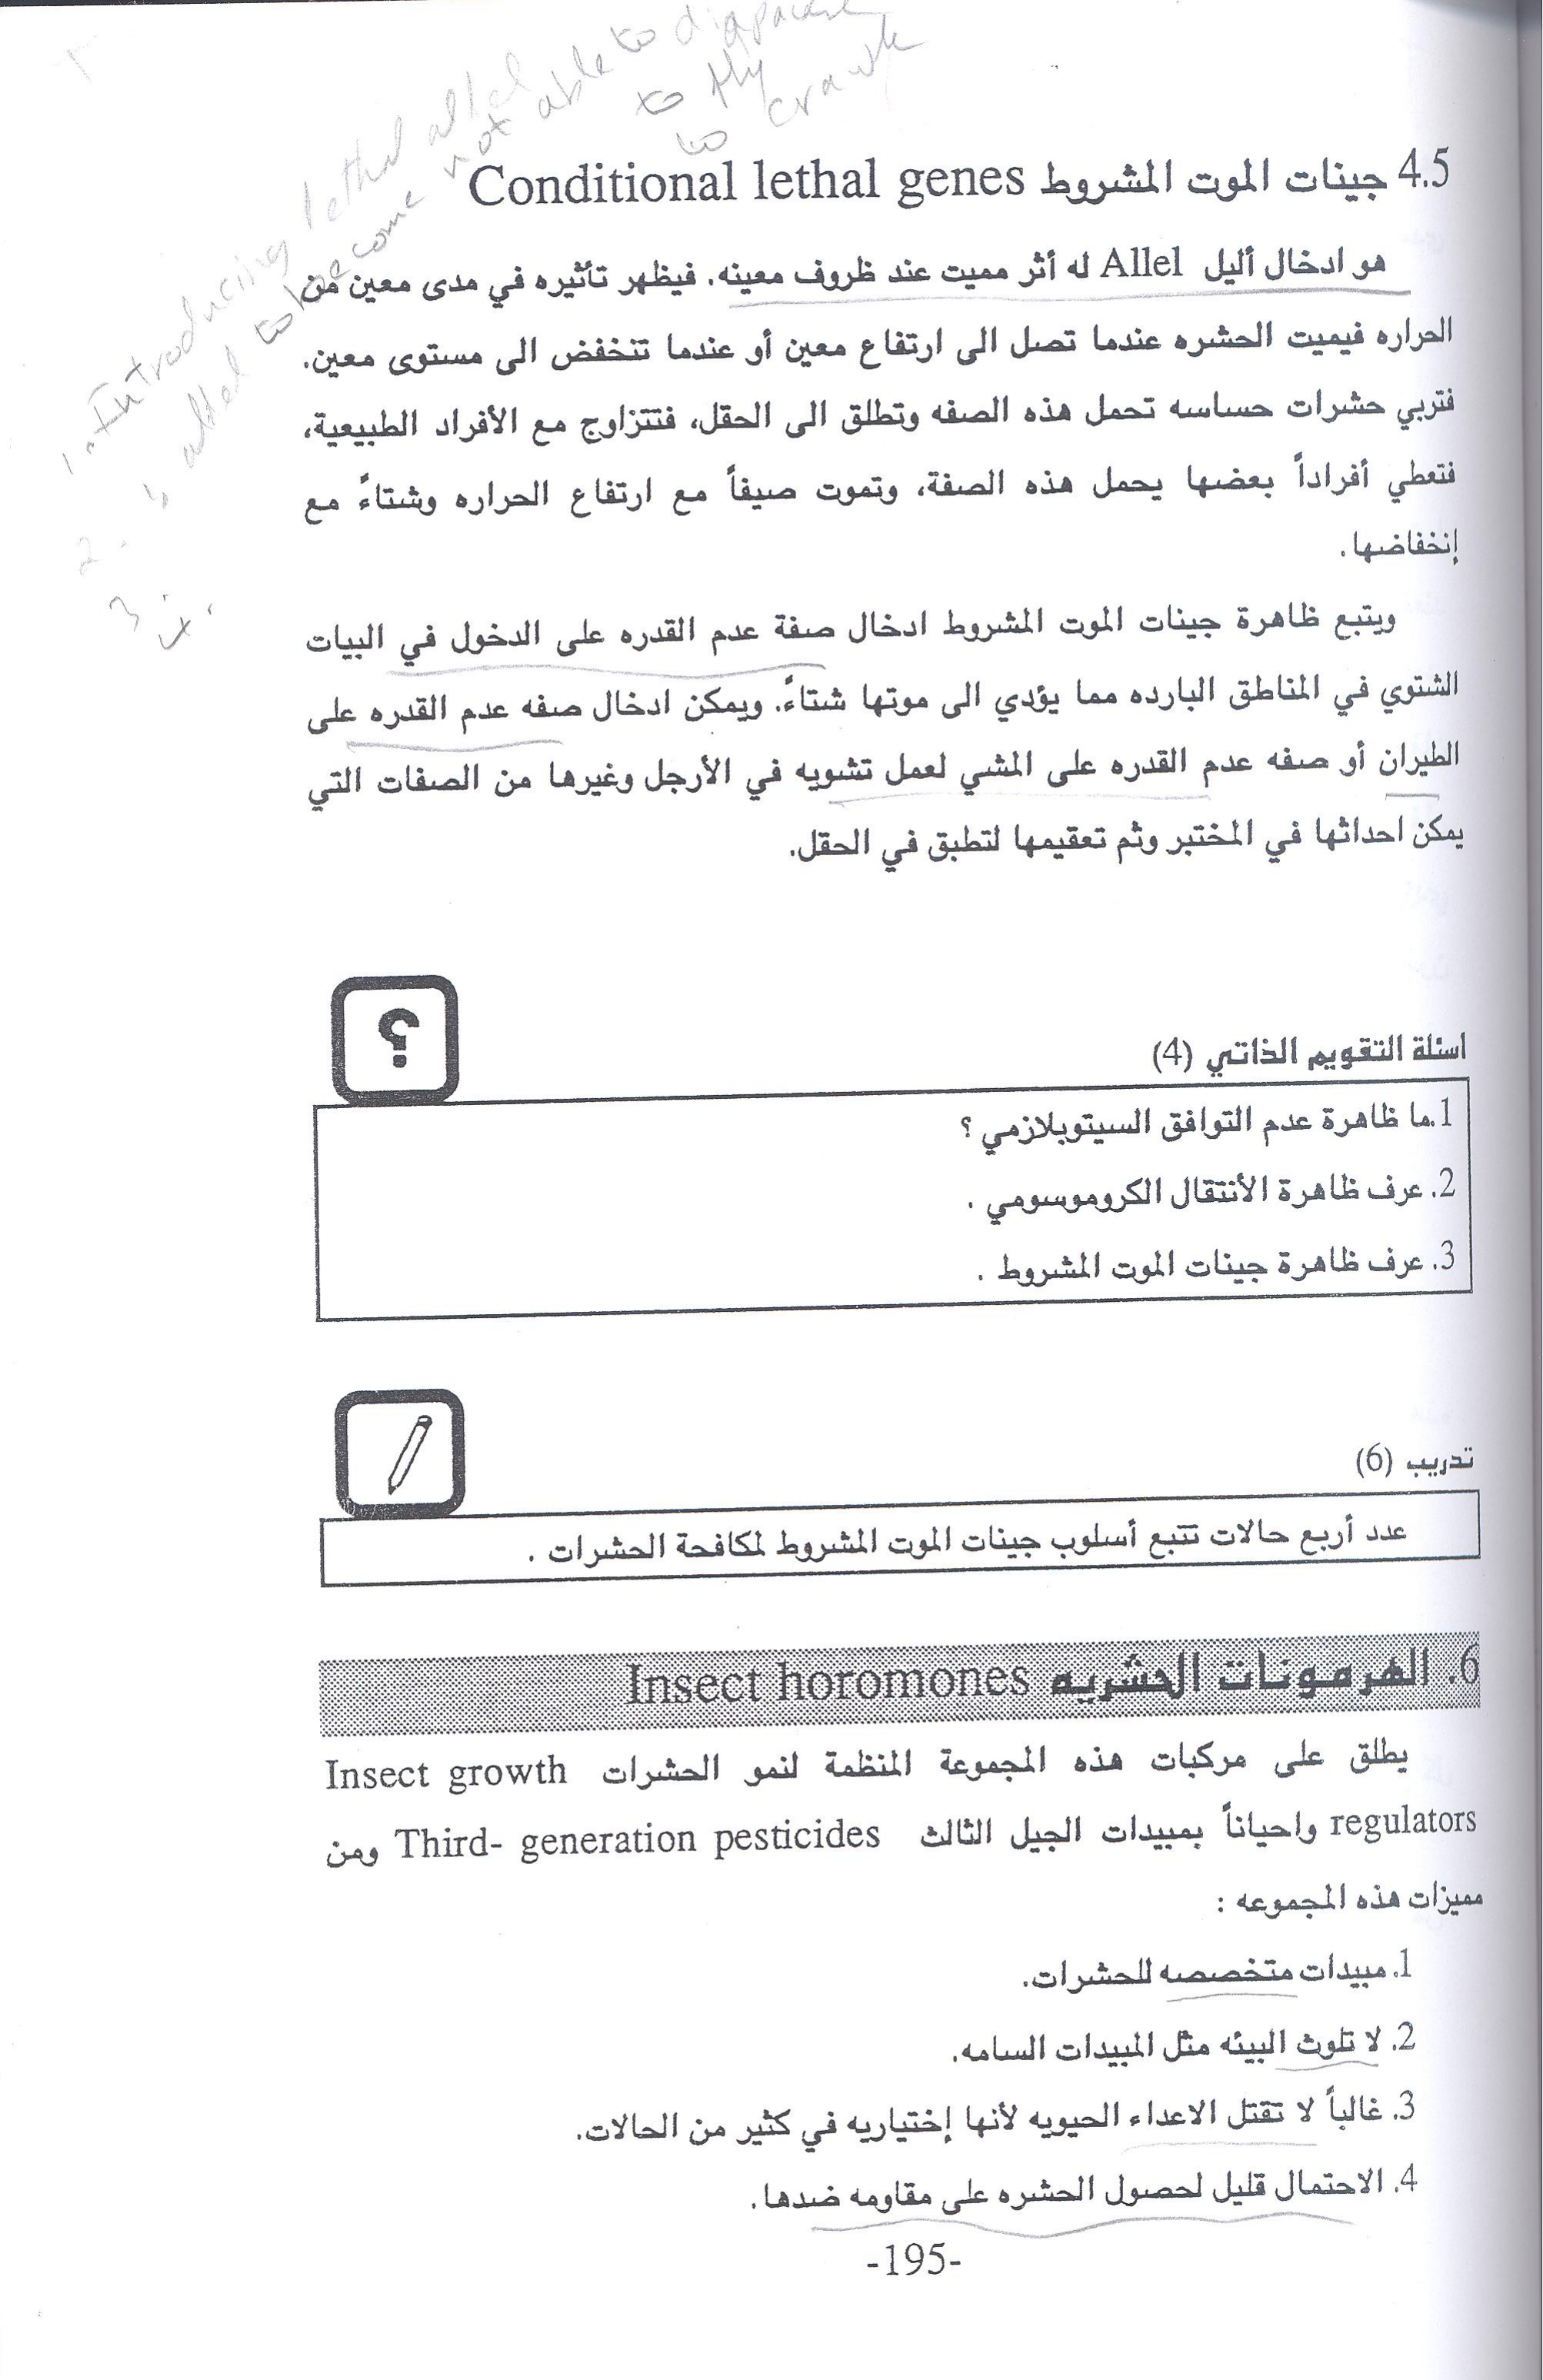 1- Introducing lethal allel
2- " allel to become not able to diapause
3 " to fly
4. to crawle
4.5 جينات الموت المشروط Conditional lethal genes
هو ادخال أليل Allel له أثر مميت عند ظروف معينه. فيظهر تأثيره في مدى معين من
الحراره فيميت الحشره عندما تصل الى ارتفاع معين أو عندما تنخفض الى مستوى معين.
فتربي حشرات حساسه تحمل هذه الصفه وتطلق الى الحقل، فتتزاوج مع الأفراد الطبيعية،
فتعطي أفراداً بعضها يحمل هذه الصفة، وتموت صيفاً مع ارتفاع الحراره وشتاءً مع
إنخفاضها.
ويتبع ظاهرة جينات الموت المشروط ادخال صفة عدم القدره على الدخول في البيات
الشتوي في المناطق البارده مما يؤدي الى موتها شتاءً. ويمكن ادخال صفه عدم القدره على
الطيران أو صفه عدم القدره على المشي لعمل تشويه في الأرجل وغيرها من الصفات التي
يمكن احداثها في المختبر وثم تعقيمها لتطبق في الحقل.
؟
اسئلة التقويم الذاتي (4)
1.ما ظاهرة عدم التوافق السيتوبلازمي ؟
2. عرف ظاهرة الأنتقال الكروموسومي .
3. عرف ظاهرة جينات الموت المشروط .
تدريب (6)
عدد أربع حالات تتبع أسلوب جينات الموت المشروط لمكافحة الحشرات .
6. الهرمونات الحشريه Insect horomones
يطلق على مركبات هذه المجموعة المنظمة لنمو الحشرات Insect growth
regulators واحياناً بمبيدات الجيل الثالث Third- generation pesticides ومن
مميزات هذه المجموعه :
1. مبيدات متخصصه للحشرات.
2. لا تلوث البيئه مثل المبيدات السامه.
3. غالباً لا تقتل الاعداء الحيويه لأنها إختياريه في كثير من الحالات.
4. الاحتمال قليل لحصول الحشره على مقاومه ضدها.
-195-